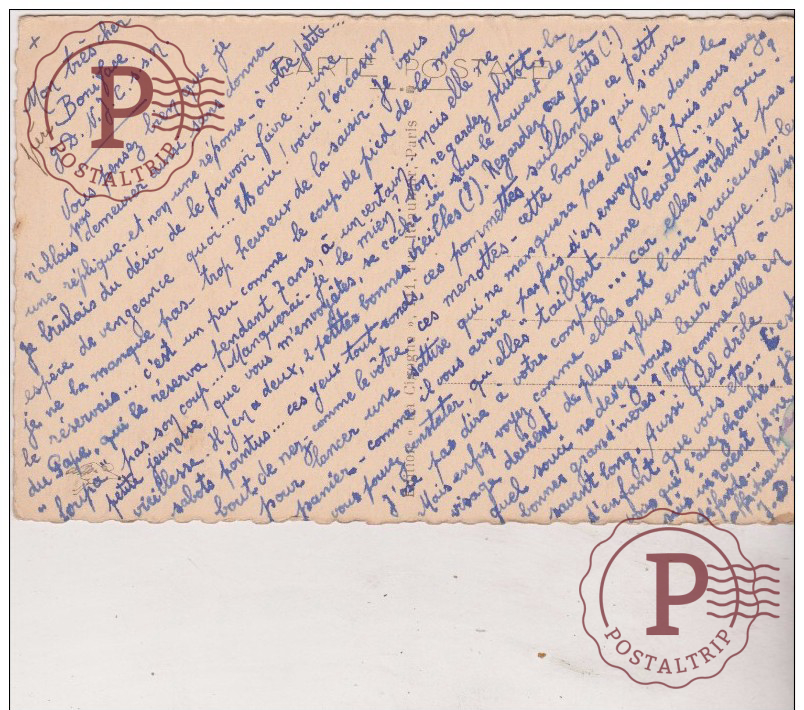 +
Mon très cher
Boniface
D. V. J. C. s. s. n
Vous pensez bien que je
n'allais pas demeurer et vous donner
une réplique - et non une réponse - à votre petite...
Je brûlais du désir de le pouvoir faire... une
espèce de vengeance quoi... Et oui! voici l'occasion
je ne la manque pas - trop heureux de la saisir. Je vous
le réservais... c'est un peu comme le coup de pied de la mule
du Pape, qui le réserva pendant 7 ans à un certain, mais elle ne
"loupa" pas son coup... Manquerai-je le mien? Non, regardez plutôt la
petite jeunesse que vous m'envoyâtes, se cacher ici sous le couvert de la
vieillesse. Il y en a deux, 2 petites bonnes vieilles (!). Regardez ces petits (!)
sabots pointus... ces yeux tout ronds, ces pommettes saillantes, ce petit
bout de nez comme le vôtre, ces menottes - cette bouche qui s'ouvre
pour lancer une sottise qui ne manquera pas de tomber dans le
panier - comme il vous arrive parfois d'en envoyer. Et puis vous savez,
vous pouvez constater, qu'elles "taillent une bavette" sur qui?
J' pas dire à votre compte... car elles ne valent pas -
Mais enfin voyez comme elles ont l'air soucieuses, le
visage devient de plus en plus énigmatique... Aussi
quel souci ne devez-vous leur causer à ces
bonnes grand'mères! Voyez comme elles en
savent long. Aussi quel drôle
d'enfant que vous êtes. C'est
vous qui l'avez cherché, je
je me
défends...
J. D.
CARTE POSTALE
Editions "La Cigogne", Paris
P
POSTALTRIP
P
POSTALTRIP